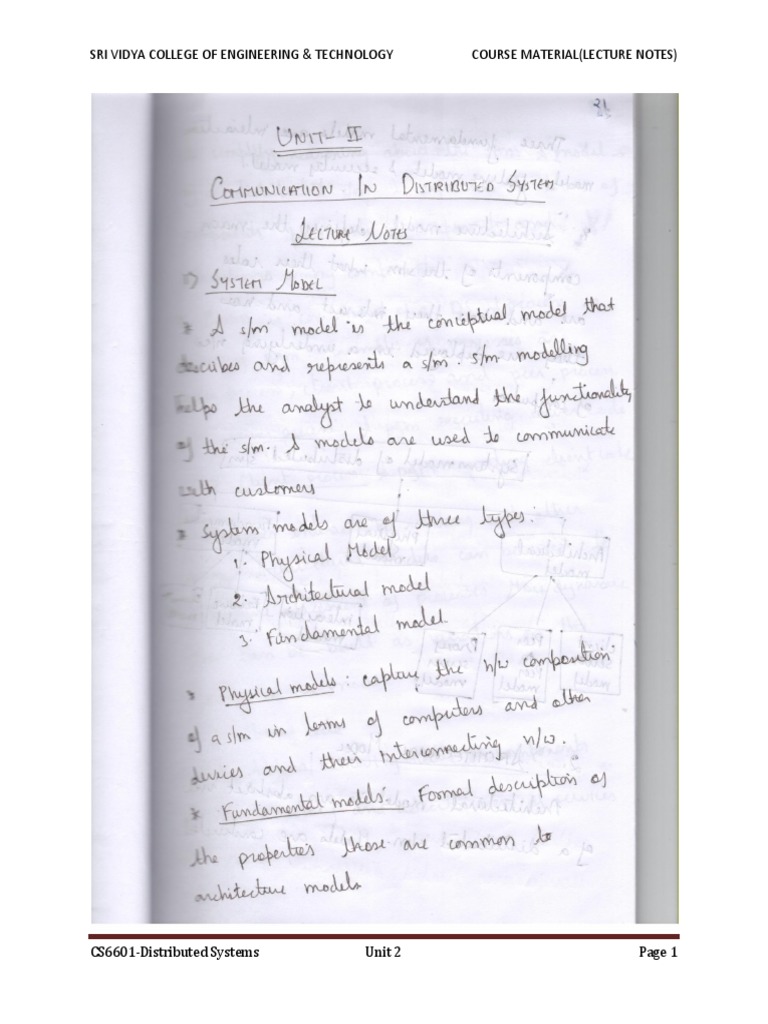 SRI VIDYA COLLEGE OF ENGINEERING & TECHNOLOGY COURSE MATERIAL(LECTURE NOTES)
UNIT-II
COMMUNICATION IN DISTRIBUTED SYSTEM
LECTURE NOTES
1) SYSTEM MODEL
* A s/m model is the conceptual model that
describes and represents a s/m. s/m modelling
helps the analyst to understand the functionality
of the s/m. & models are used to communicate
with customers
* System models are of three types:
1. Physical Model
2. Architectural model
3. Fundamental model.
* Physical models: capture the h/w composition
of a s/m in terms of computers and other
devices and their interconnecting n/w.
* Fundamental models: Formal description of
the properties those are common to
architecture models
CS6601-Distributed Systems Unit 2 Page 1